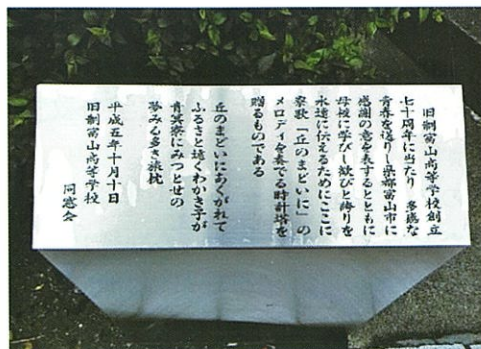 旧制富山高等学校創立
七十周年に当たり 多感な
青春を過りし県都富山市に
感謝の意を表するとともに
母校に学びし歓びと誇りを
永遠に伝えるためにここに
寮歌「丘のまどいに」の
メロディを奏でる時計塔を
贈るものである
丘のまどいにあくがれて
ふるさと遠くわかき子が
青冥寮にみつとせの
夢みる多き旅枕
平成五年十月十日
旧制富山高等学校
同窓会